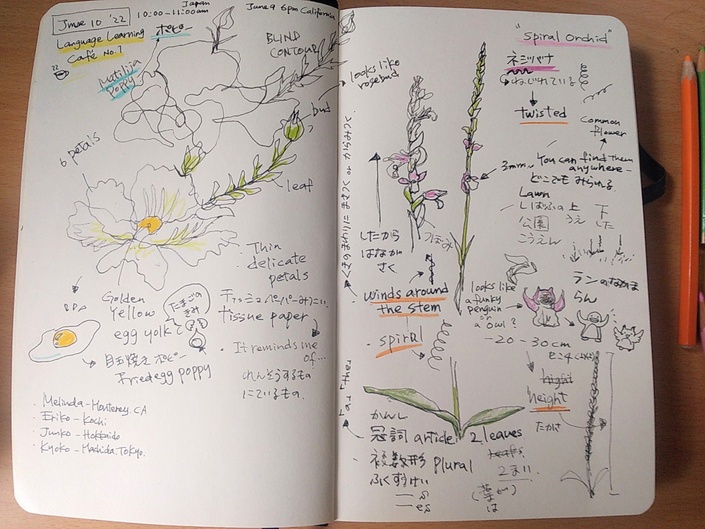 June 10 '22
10:00-11:00am
Japan
June 9 6pm California
Language Learning
Café No.1
Matilija
Poppy
BLIND
CONTOUR
6 petals
bud
leaf
Thin
delicate
petals
Golden
Yellow
egg yolk
たまごの
きみ
ティッシュペーパーみたい
Tissue paper
目玉焼きポピー
Fried egg poppy
It reminds me
of...
れんそうするもの
にているもの.
Melinda - Monterey, CA
Eriko - Kochi
Junko - Hokkaido
Kyoko - Machida Tokyo.
looks like
rosebud
したから
はなが
さく
つぼみ
winds around
the stem
spiral
"Spiral Orchid"
ネジバナ
ねじれている
twisted
Common
flower
3mm
You can find them
anywhere-
どこでもみられる
Lawn
しばふの上
うえ
下
した
公園
こうえん
looks like
a funky
penguin
or
a owl?
ランのなかま
らん
20-30cm
height
たかさ
かんし
冠詞 article
複数形 plural
ふくすうけい
s
es
2 leaves
2まい
(葉が)
は